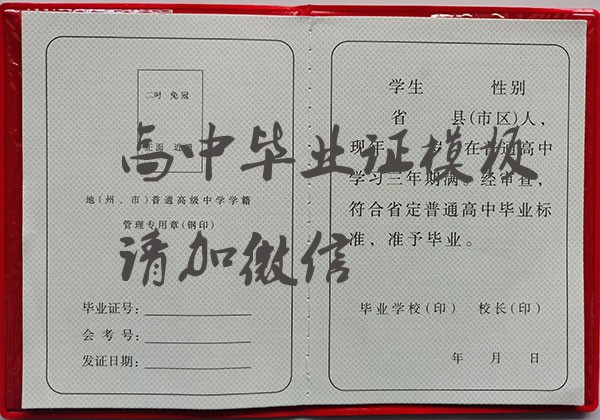 二吋 免冠
正面 近照
地(州、市)普通高级中学学籍
管理专用章(钢印)
毕业证号:
会考号:
发证日期:
学生 性别
省 县(市区)人,
现年 岁,在普通高中
学习三年期满。经审查,
符合省定普通高中毕业标
准,准予毕业。
毕业学校(印) 校长(印)
年 月 日
高中毕业证模版
请加微信